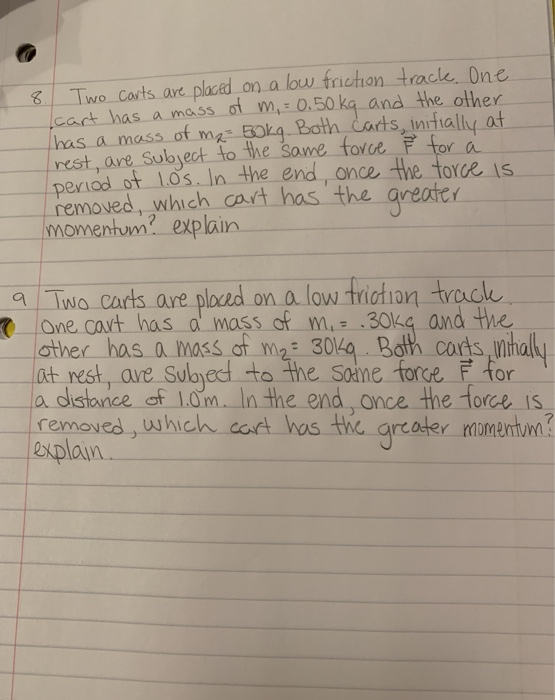 8 Two carts are placed on a low friction track. One
cart has a mass of m₁ = 0.50kg and the other
has a mass of m₂ = 50kg. Both carts, initially at
rest, are subject to the same force F⃗ for a
period of 1.0s. In the end, once the force is
removed, which cart has the greater
momentum? explain
9 Two carts are placed on a low friction track.
One cart has a mass of m₁ = .30kg and the
other has a mass of m₂ = 30kg. Both carts, initially
at rest, are subject to the same force F⃗ for
a distance of 1.0m. In the end, once the force is
removed, which cart has the greater momentum?
explain.